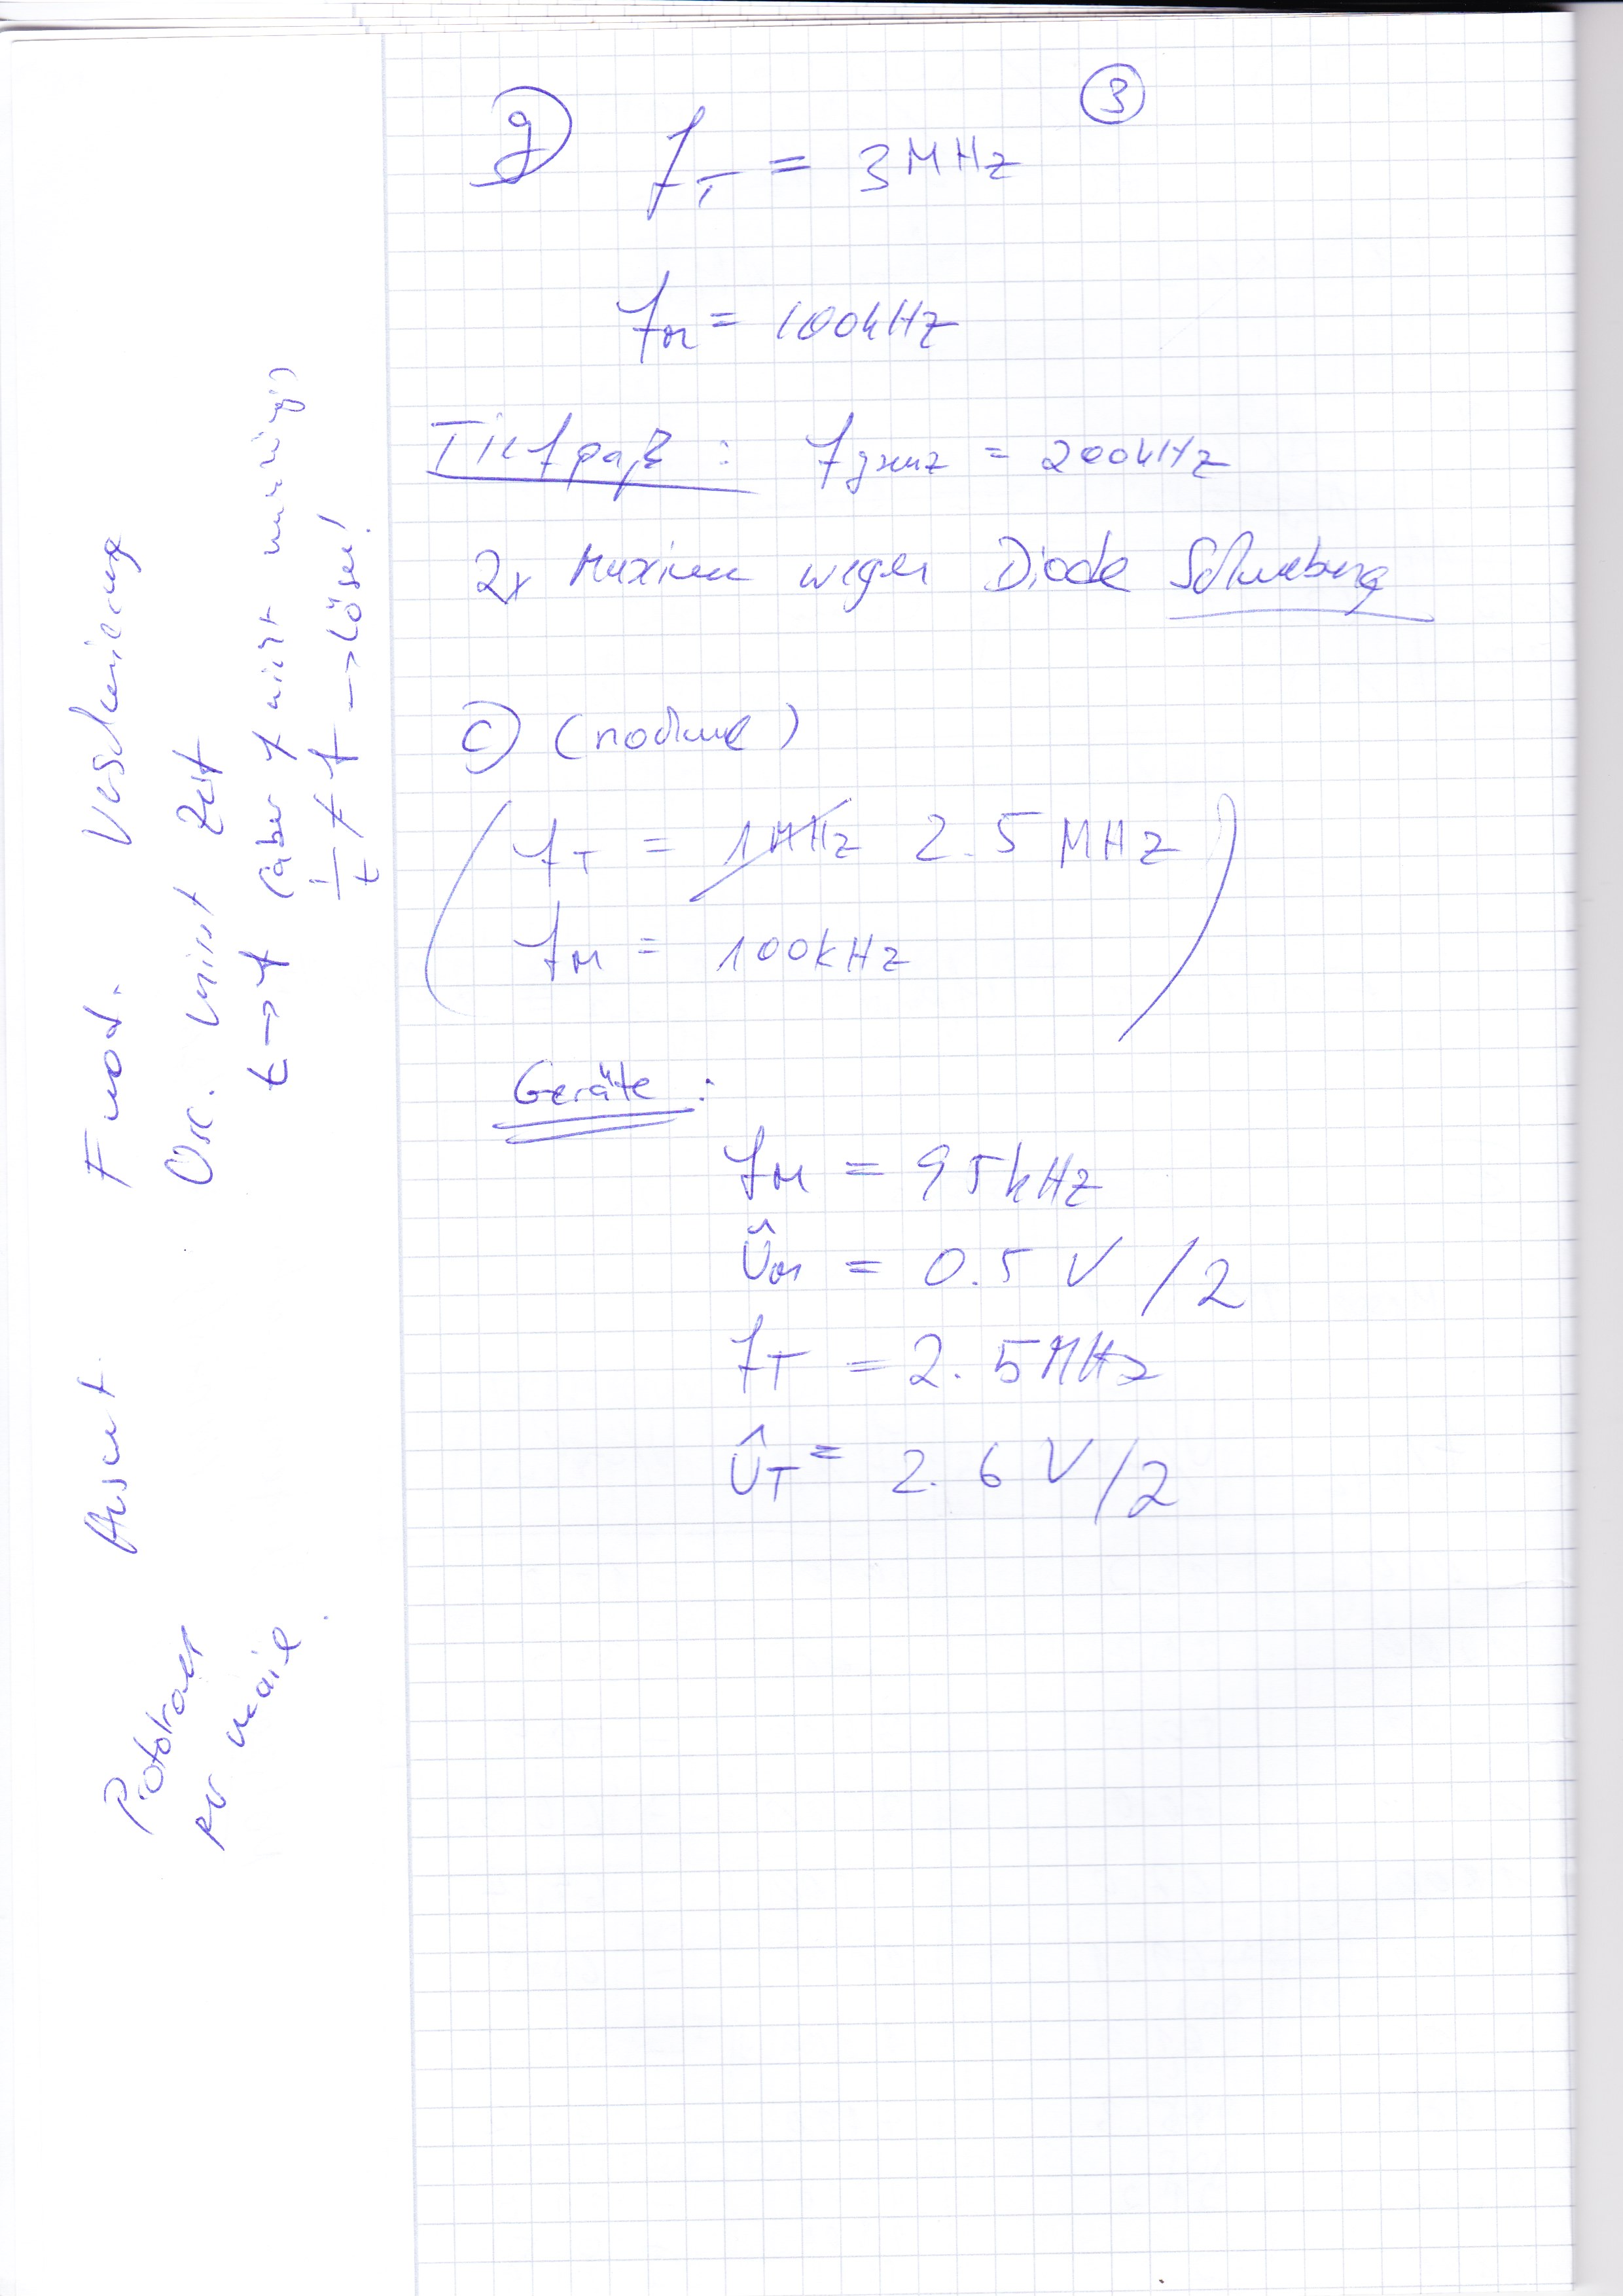 ③
g) f_T = 3 MHz
f_M = 100kHz
Tiefpaß : f_grenz = 200kHz
2x Maxima wegen Diode Schwebung
c) (nochmal)
f_T = 1MHz 2.5 MHz
f_M = 100kHz
Geräte :
f_M = 95kHz
Û_M = 0.5 V /2
f_T = 2.5MHz
Û_T = 2.6 V/2
Fmod. Verschmierung
Osc. misst Zeit
t → f (aber f nicht
1/t ≠ f → Lösen!
per mail